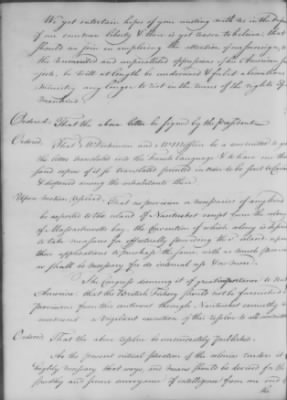 We yet entertain hopes of your uniting with us in the defence
of our common liberty & there is yet reason to believe, that
should we join in imploring the attention of our sovereign, to
the unmerited and unparalleled oppressions of his American sub-
jects, he will at length be undeceived & forbid a licentious
Ministry any longer to riot in the ruins of the rights of
Mankind.
Ordered That the above letter be signed by the president
Ordered, That Mr Dickinson and Mr Mifflin be a committee to get
the letter translated into the french language & to have one thou
sand copies of it so translated printed in order to be sent to Canada
& dispersed among the inhabitants there
Upon motion Resolved That no provisions or necessaries of any kind
be exported to the island of Nantucket except from the colony
of Massachusetts bay, the Convention of which colony is desired
to take measures for effectually providing the sd island upon
their application to purchase the same, with as much provision
as shall be necessary for its internal use & no more.
The Congress deeming it of great importance to North
America, that the British fishery should not be furnished with
provisions from this continent through Nantucket earnestly re
commend a vigilant execution of this resolve to all committees
Ordered That the above resolve be immediately published.
As the present critical situation of the colonies renders it
highly necessary that ways and means should be devised for the
speedy and secure conveyance of intelligence from one end to
the